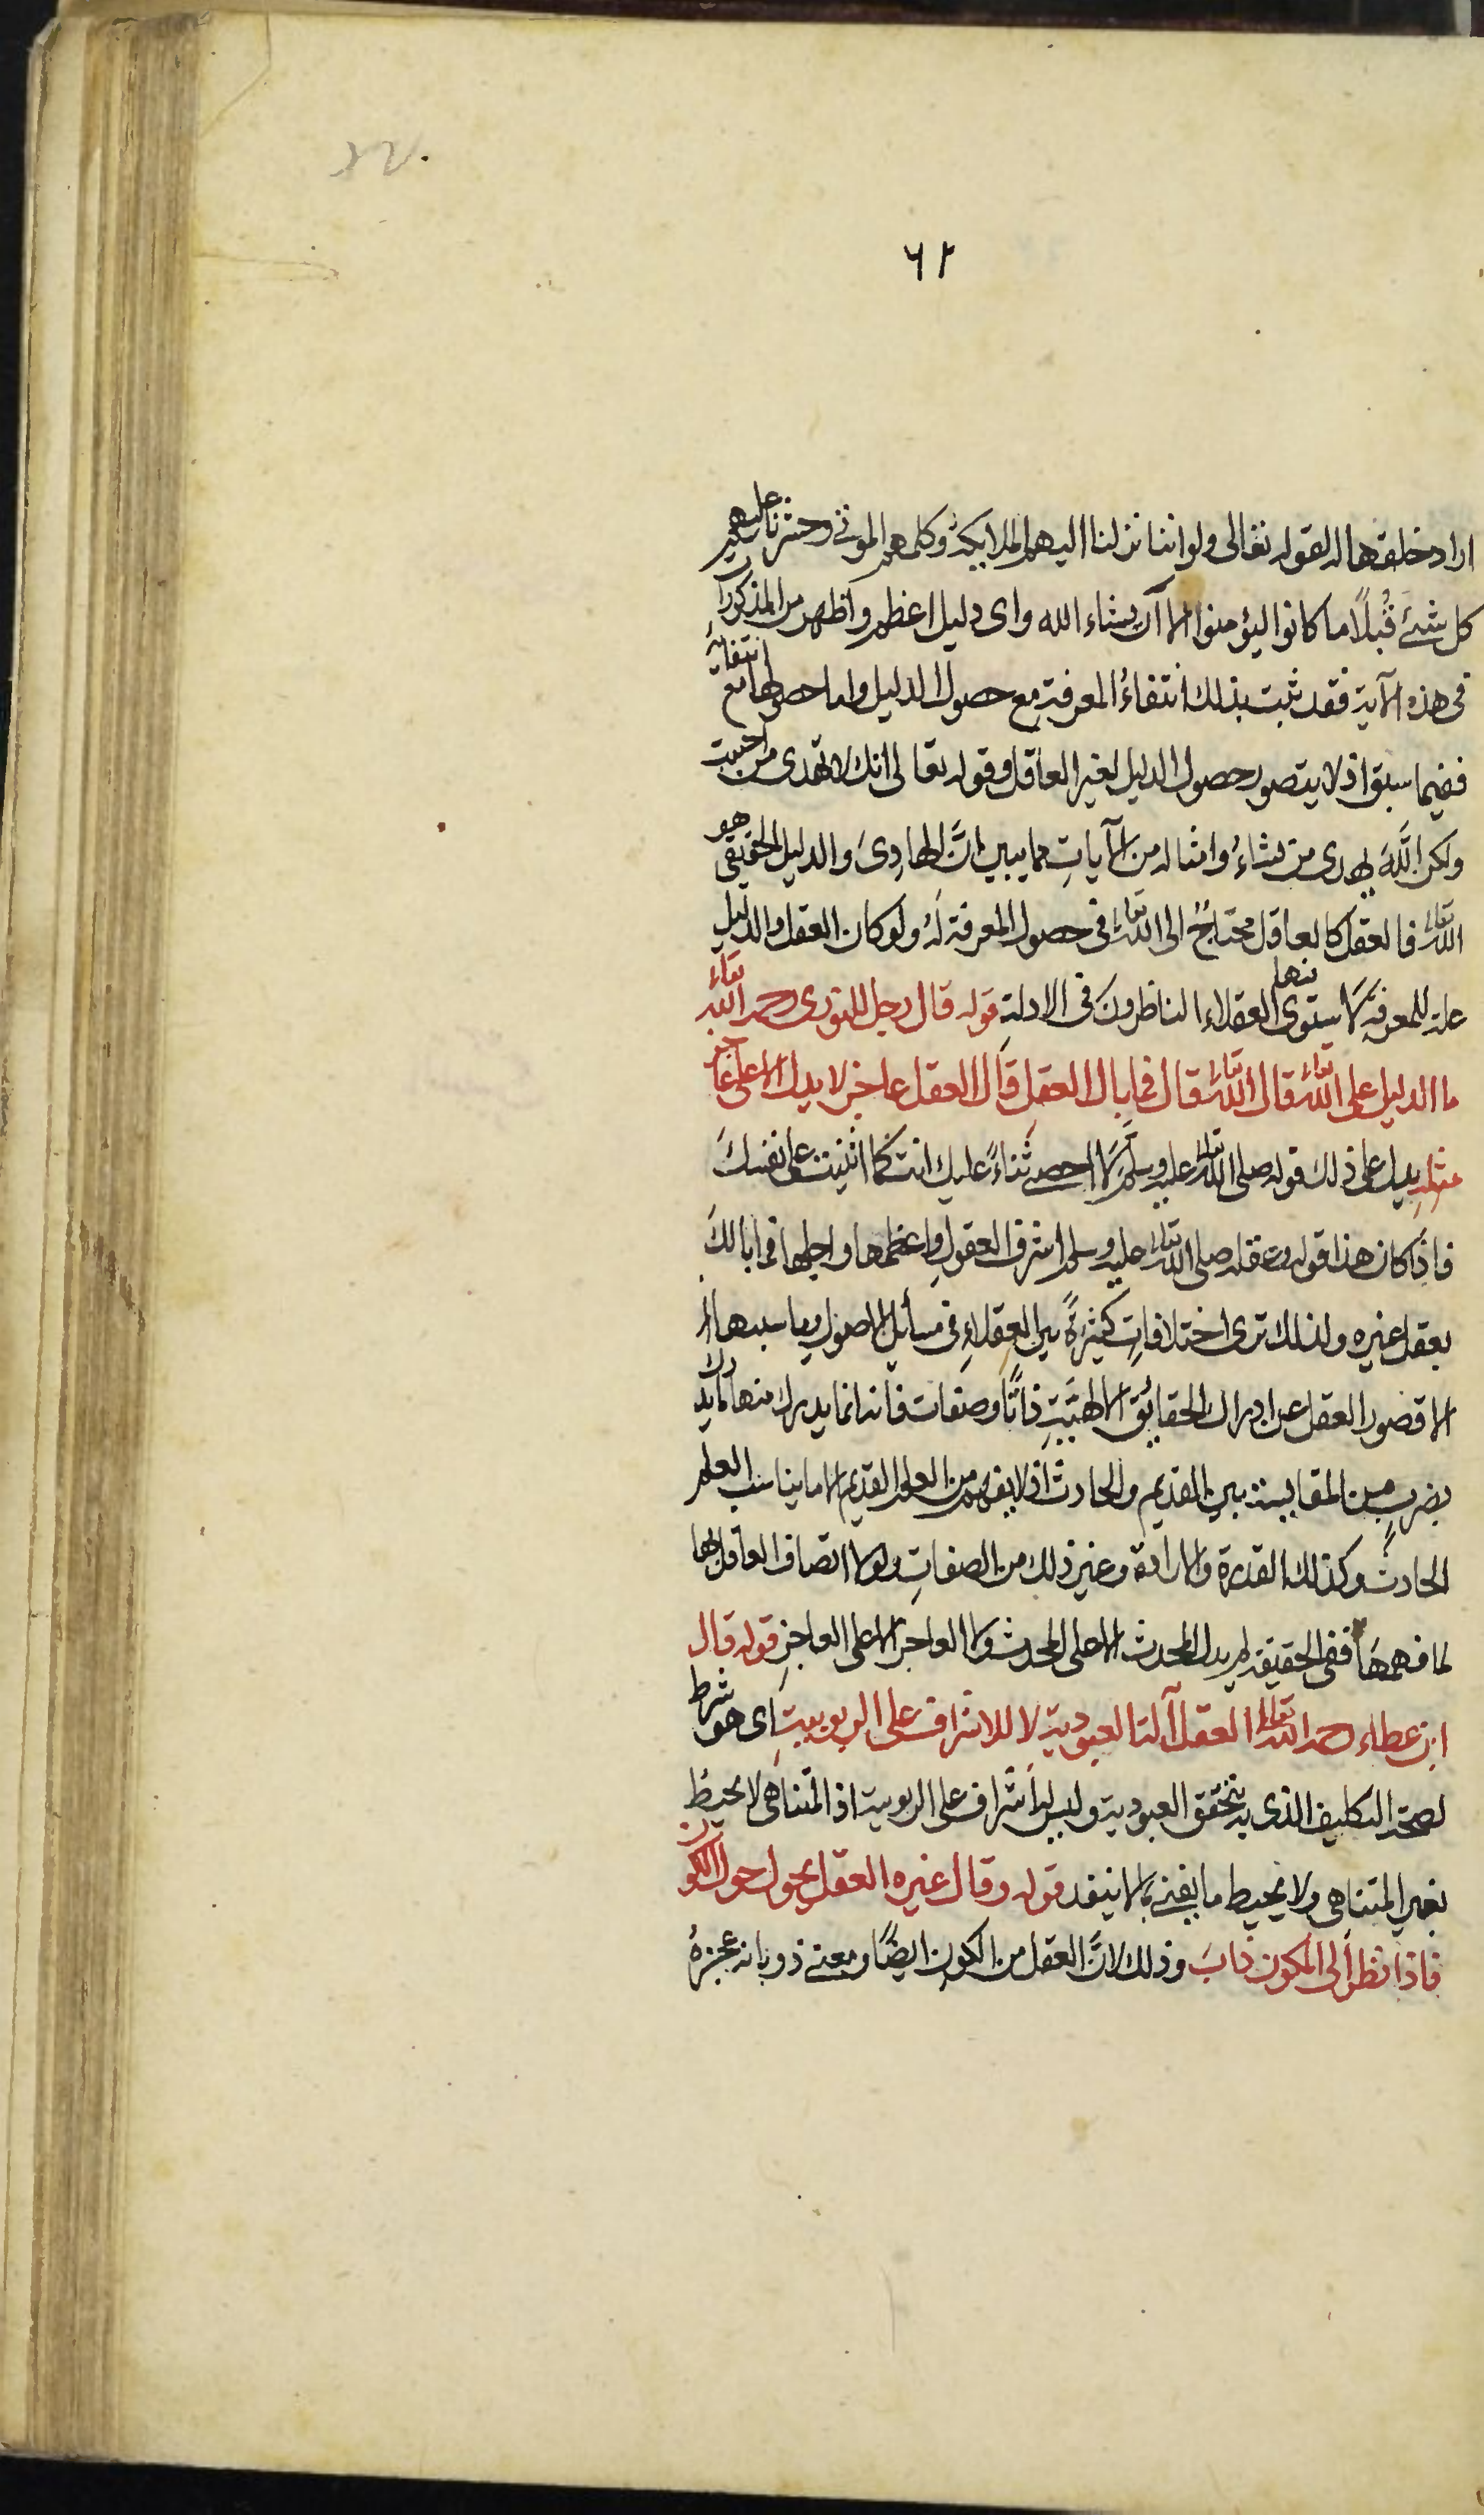 ٦٢
اراد خلقها له لقوله تعالى ولو اننا نزلنا اليهم الملايكة وكلمهم الموتى وحشرنا عليهم
كل شئ قُبلًا ما كانوا ليؤمنوا الا ان يشاء الله واى دليل اعظم واظهر من المذكور
فى هذه الآية فقد ثبت بذلك انتفاءُ المعرفةِ مع حصول الدليل واما حصولها مع انتفائه
ففيما سبق اذ لا يتصور حصول الدليل لغير العاقل وقوله تعالى انك لا تهدى من احببت
ولكن اللّٰه يهدى من يشاءُ وامثاله من الآياتِ مما يبين انَّ الهادِىَ والدليل الحقيقى هو
الله تعالى فالعقل كالعاقل محتاجٌ الى الله تعالى فى حصول المعرفة لَهُ ولو كان العقل والدليل
علة للمعرفةِ لَاستوى فيها العقلاء الناظرونَ فى الادلةِ قوله قال رجل للنورى رحمه الله تعالى
ما الدليل على الله تعالى قال الله تعالى قال فما بال العقلِ قال العقل عاجز لا يدل الا على عاجز
مثلِهِ يدل على ذلك قوله صلى الله تعالى عليه وسلم لَا احصى ثناءً عليك انت كما اثنيت على نفسكَ
فاذا كان هذا قوله وعقله صلى الله تعالى عليه وسلم اشرف العقولِ واعظمها واجلها فما بالكَ
بعقل غيره ولذلك ترى اختلافاتٍ كثيرةً بين العقلاءِ فى مسائل الاصول وما سببها
الا قصور العقل عن ادراك الحقائق الالهيَّةِ ذاتًا وصفات فانه انما يدرك منها ما يدرك
بضربٍ من المقايسة بين القديم والحادث اذ لا يفهم من العلم القديم الا ما يناسب العلم
الحادث وكذلك القدرة والارادة وغير ذلك من الصفاتِ ولولا اتصاف العاقل بها
لما فهمها ففى الحقيقة لم يدل المحدث الا على المحدث ولا العاجز الا على العاجزِ قوله قال
ابن عطاء رحمه الله تعالى العقل آلة العبودية لا للاشراف على الربوبيةِ اى هو شرط
لصحة التكليف الذى به يتحقق العبودية وليس له اشراف على الربوبية اذ المتناهى لا يحيط
بغير المتناهى ولا يحيط ما يفنى بما لا ينفد قوله وقال غيره العقل يجول حول الكون
فاذا نظر الى المكون ذابَ وذلك لانَّ العقل من الكون ايضًا ومعنى ذوبانه عجزهُ